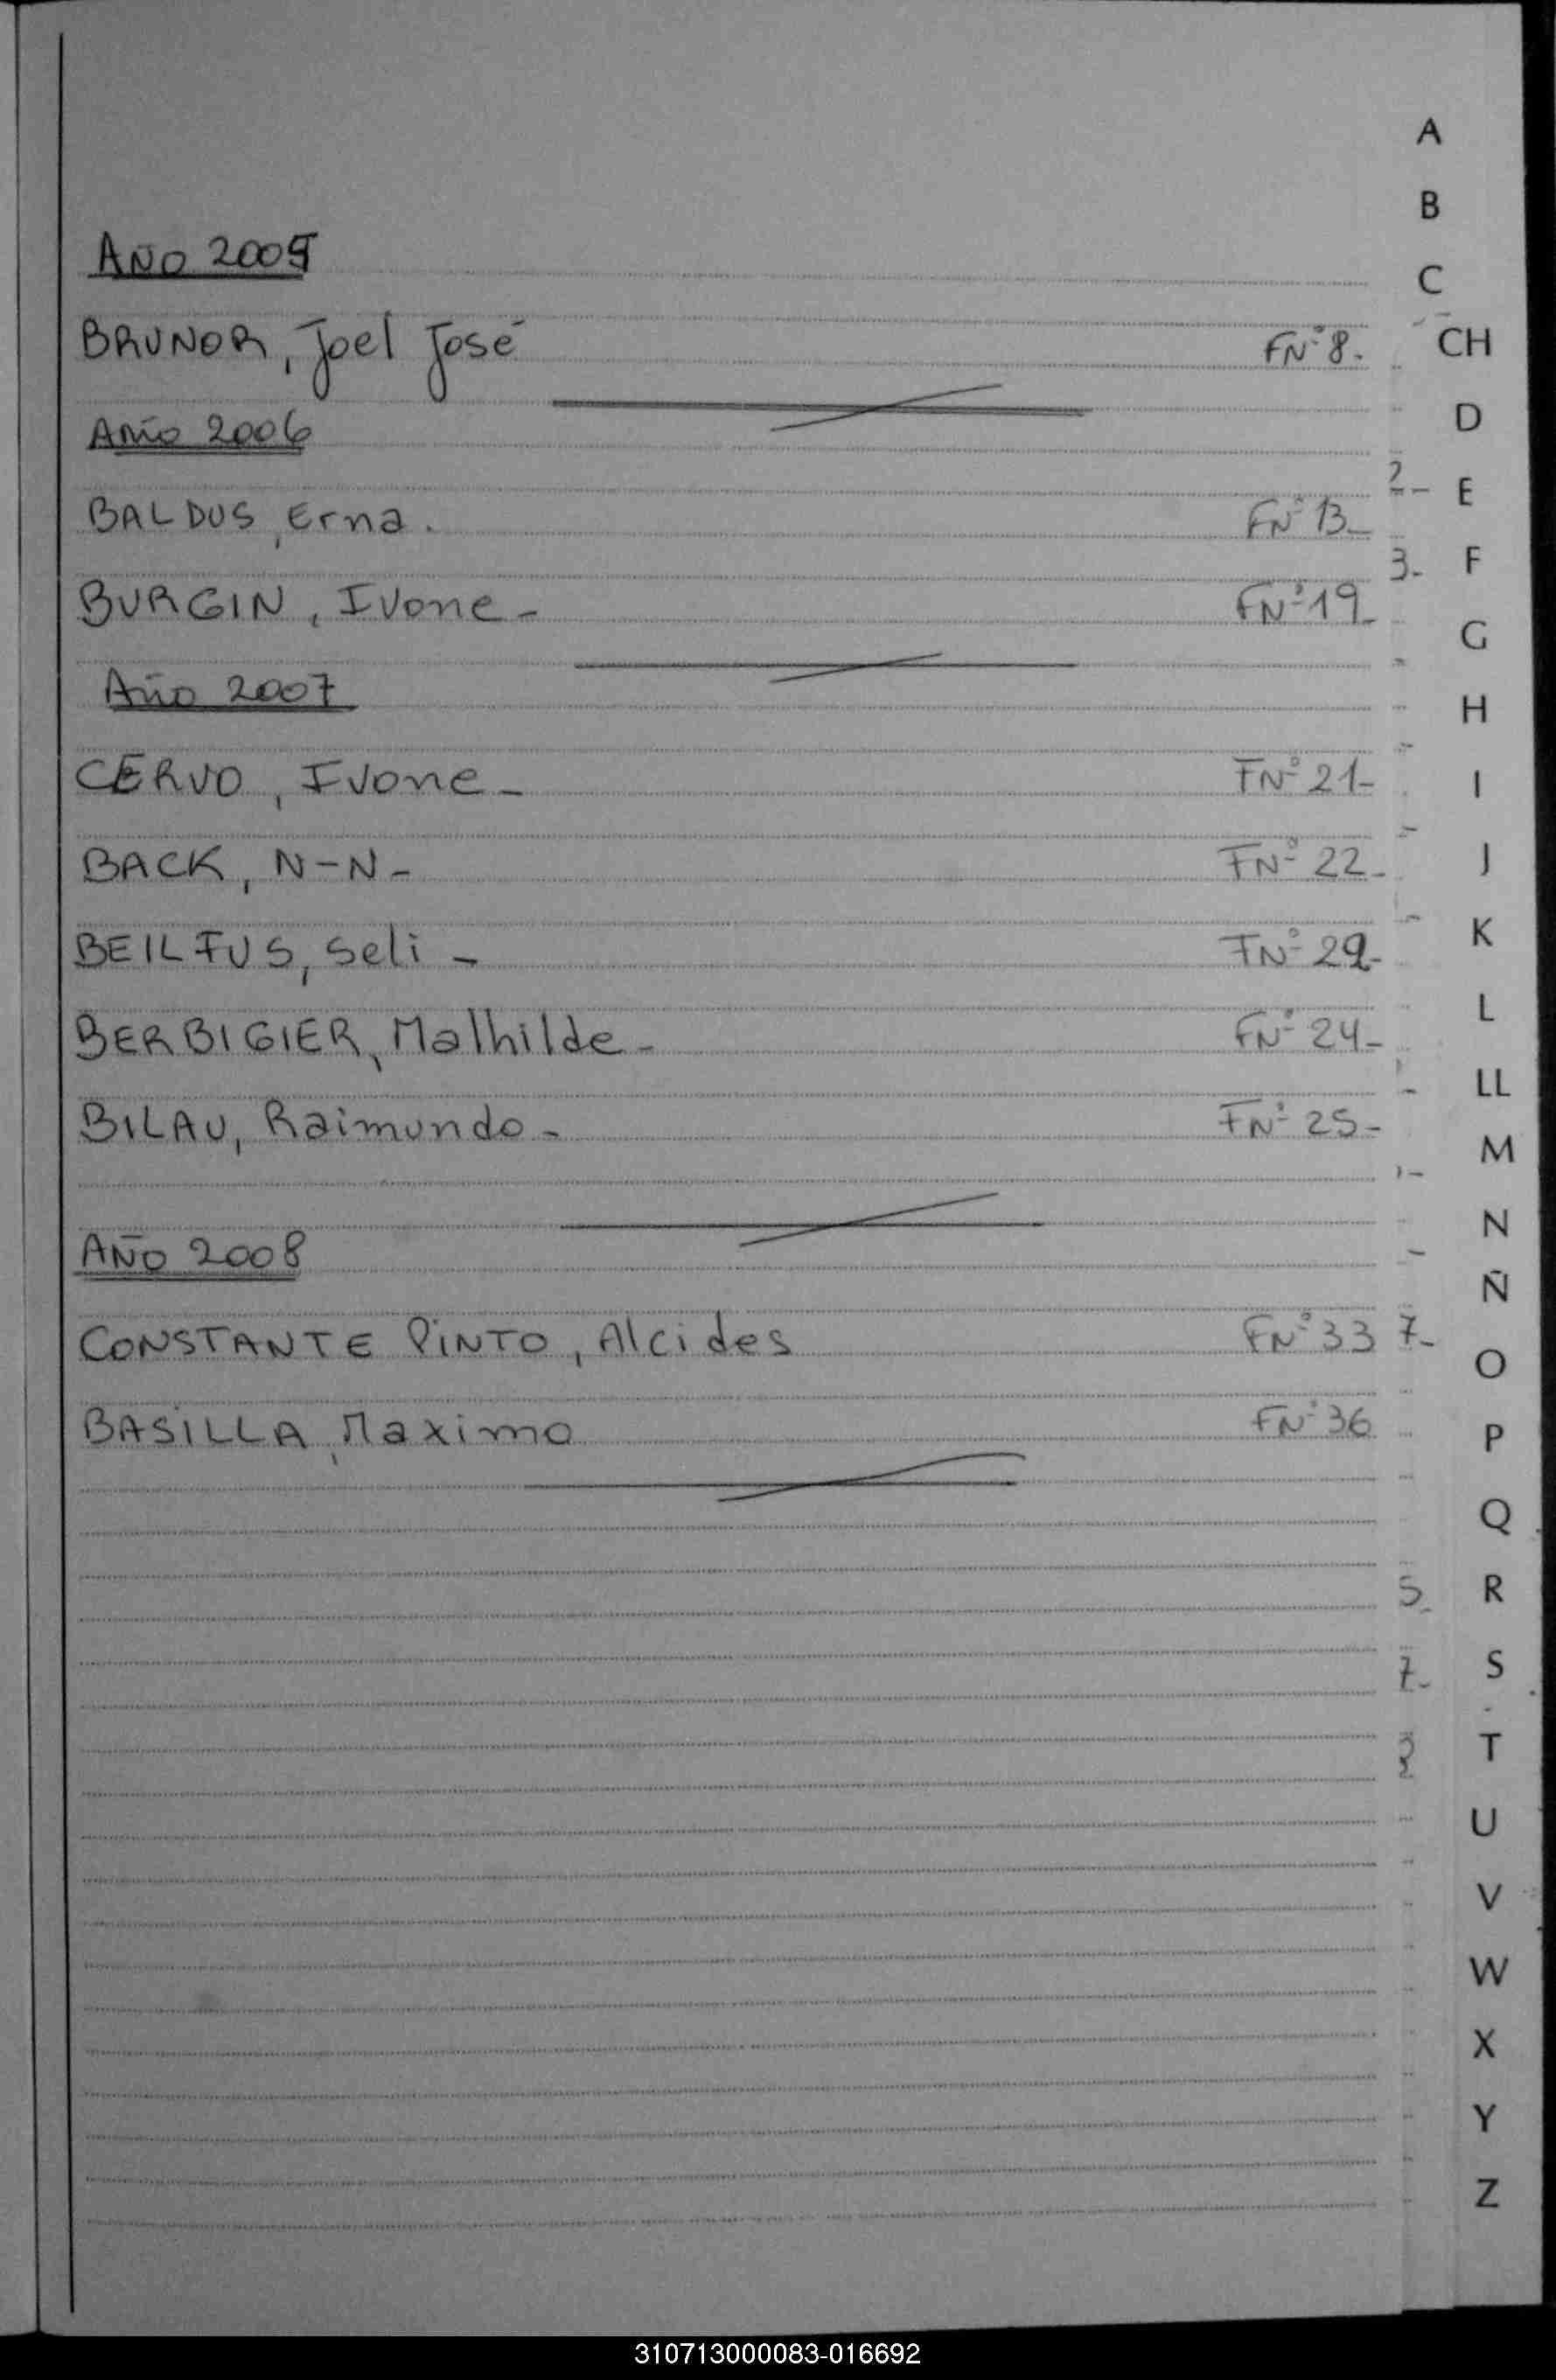 AÑO 2005
BRUNOR, Joel José FNº 8.
Año 2006
BALDUS, Erna. FNº 13-
BURGIN, Ivone- FNº 19-
Año 2007
CERVO, Ivone- FNº 21-
BACK, N-N- FNº 22-
BEILFUS, Seli- FNº 29-
BERBIGIER, Mathilde- FNº 24-
BILAU, Raimundo- FNº 25-
AÑO 2008
CONSTANTE PINTO, Alcides FNº 33
BASILLA, Maximo FNº 36
A
B
C
CH
D
2- E
3- F
G
H
I
J
K
L
LL
M
N
Ñ
7- O
P
Q
5- R
7- S
T
U
V
W
X
Y
Z
310713000083-016692